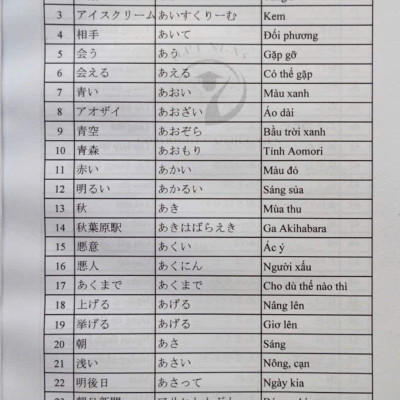 3 アイスクリーム あいすくりーむ Kem
4 相手 あいて Đối phương
5 会う あう Gặp gỡ
6 会える あえる Có thể gặp
7 青い あおい Màu xanh
8 アオザイ あおざい Áo dài
9 青空 あおぞら Bầu trời xanh
10 青森 あおもり Tỉnh Aomori
11 赤い あかい Màu đỏ
12 明るい あかるい Sáng sủa
13 秋 あき Mùa thu
14 秋葉原駅 あきはばらえき Ga Akihabara
15 悪意 あくい Ác ý
16 悪人 あくにん Người xấu
17 あくまで あくまで Cho dù thế nào thì
18 上げる あげる Nâng lên
19 挙げる あげる Giơ lên
20 朝 あさ Sáng
21 浅い あさい Nông, cạn
22 明後日 あさって Ngày kia